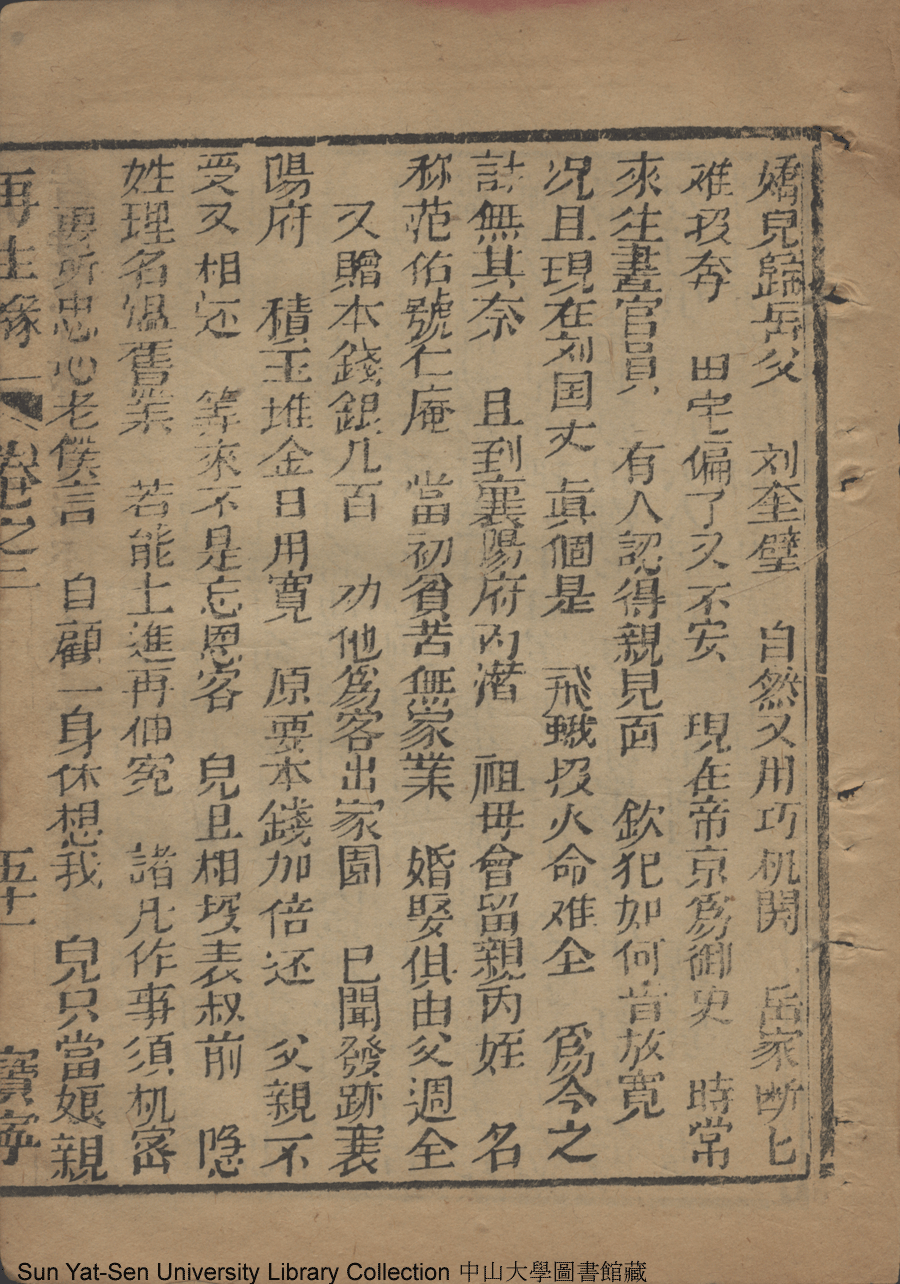 嬌兒歸岳父 刘奎璧 自然又用巧机関 岳家断匕
难投奔 田宅偏了又不安 現在帝京為御史 時常
來徃晝官員 有人認得親見面 欽犯如何肯放寛
况且現在刘国丈 真個是 飛蛾投火命难全 為今之
計無其奈 且到襄陽府内潛 祖母曾留親丙姪 名
称范佑號仁庵 當初貧苦無家業 婚娶俱由父週全
又贈本錢銀几百 功他為客出家園 已聞發跡襄
陽府 積玉堆金日用寛 原要本錢加倍还 父親不
受又相还 筭來不是忘恩客 兒且相投表叔前 隐
姓理名温舊業 若能上進再伸冤 諸凡作事須机密
要所忠心老僕言 自顧一身休想我 兒只當娘親
再生緣 卷之二 五十一 寳寧
Sun Yat-Sen University Library Collection 中山大學圖書館藏